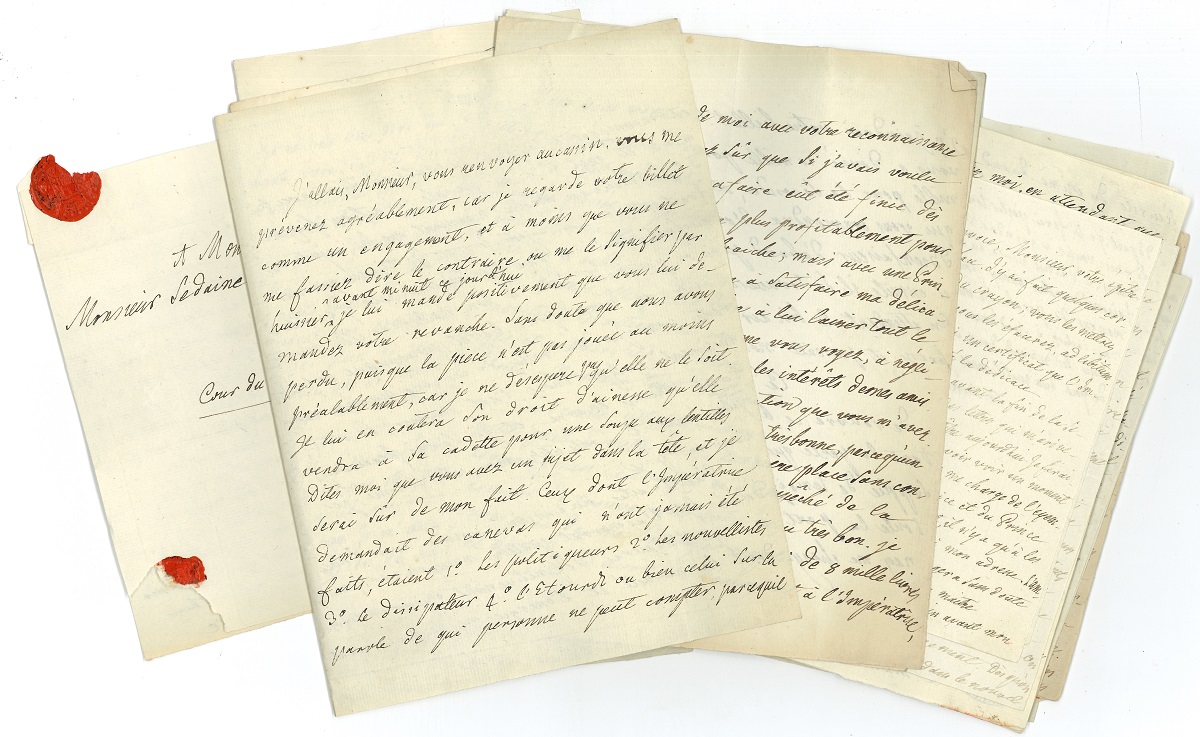 A Mon
Monsieur Sedaine
Cour du
J'allais, Monsieur, vous renvoyer aucassin. vous me
prevenez agréablement, car je regarde votre billet
comme un engagement, et à moins que vous ne
me fassiez dire le contraire ou me le signifier par
avant minuit ce jourd'hui
huissier, je lui mande positivement que vous lui de-
mandez votre revanche. Sans doute que nous avons
perdu, puisque la piece n'est pas jouée au moins
préalablement, car je ne désespere pas qu'elle ne le soit.
Il lui en coutera son droit d'ainesse qu'elle
vendra à sa cadette pour une soupe aux lentilles
Dites moi que vous avez un sujet dans la tête, et je
serai sûr de mon fait. Ceux dont l'Impératrice
demandait des canevas qui n'ont jamais été
faits, étaient 1.º Les politiqueurs 2.º Les nouvellistes
3.º le dissipateur 4.º l'Etourdi ou bien celui sur la
parole de qui personne ne peut compter parcequil
de moi avec votre reconnaissance
sûr que si j'avais voulu
afaire eût été finie dès
plus profitablement pour
mais avec une Prin-
à satisfaire ma délica-
à lui laisser tout le
me vous voyez, à négli-
les intérêts de mes amis
que vous m'avez
très bonne, parcequ'en
place sans con-
pêché de la
très bon. je
de 8 mille livres
à l'Impératrice,
moi, en attendant
Monsieur, votre epitre
j'y ai fait quelques cor
au crayon; vous les
les effacerez, ad libitum
un certificat que l'Im-
la dédicace
avant la fin de la
qui m'arrive
voir un moment
me charge de l'exem-
et du Prince
il n'y a qu'à les
mon adresse.
sans doute
maitre
avant mon